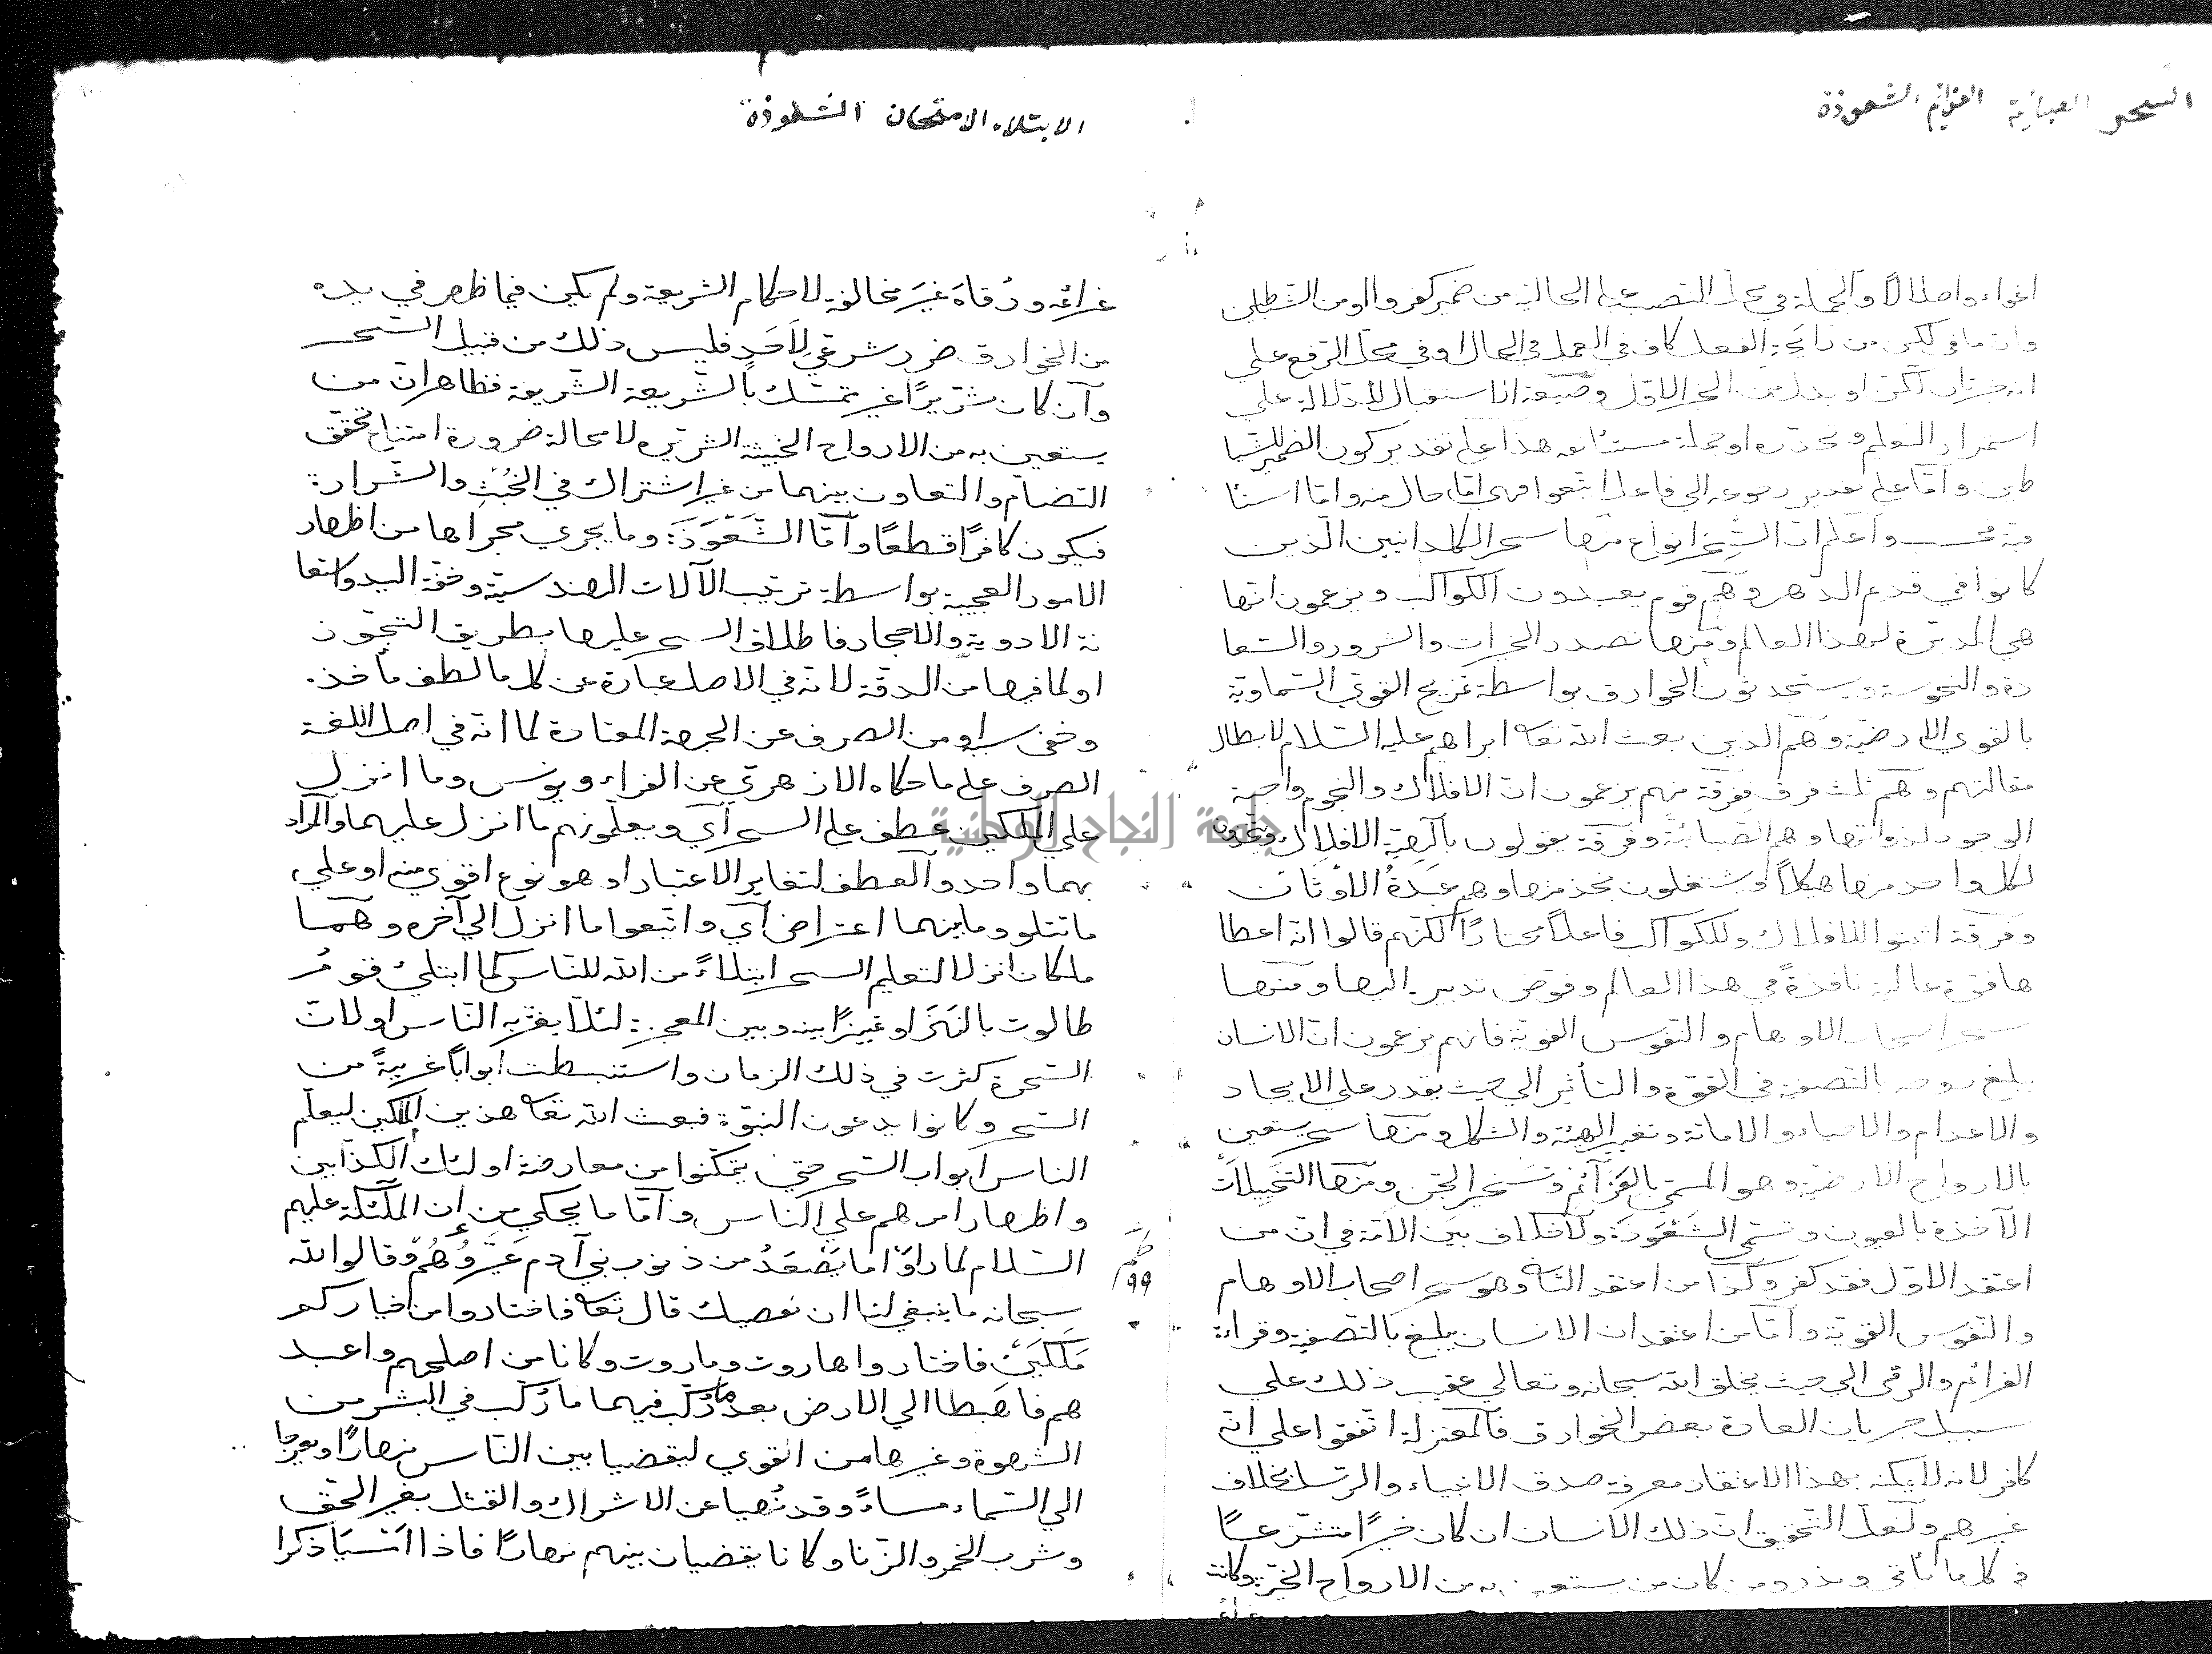 السحر الصبائية العزائم الشعوذة
اغواء واضلالاً والجملة في محل النصب على الحالية من ضمير كفروا او من الشيطين
وان ما في لكن من رائحة الفعل كاف في العمل في الحال او في محل الرفع على
انه خبر ثان لكن او بدل من الخبر الاول وصيغة الاستقبال للدلالة على
استمرار التعليم وتجدده او جملة مستانفة هذا على تقدير كون الضمير للشيا
طين وامّا على تقدير رجوعه الى فاعل اتبعوا فهي امّا حال منه وامّا استئنا
فية فحسب واعلم ان السحر انواع منها سحر الكلدانيين الذين
كانوا في قديم الدهر وهم قوم يعبدون الكواكب ويزعمون انها
هي المدبرة لهذا العالم ومنها تصدر الخيرات والشرور والسعا
دة والنحوسة ويستحدثون الخوارق بواسطة تمزيج القوي السماوية
بالقوي الارضية وهم الذين بعث الله تعا ابراهيم عليه السلام لابطال
مقالتهم وهم ثلث فرق ففرقة منهم يزعمون ان الافلاك والنجوم واجبة
الوجود لذواتها وهم الصابئة وفرقة يقولون بآلهية الافلاك ويتخذون
لكل واحد منها هيكلاً ويشتغلون بخدمتها وهم عبدة الاوثان
وفرقة اثبتوا للافلاك وللكواكب فاعلاً مختارًا لكنهم قالوا انه اعطا
ها قوة عالية نافذةً في هذا العالم وفوض تدبيره اليها ومنها
سحر اصحاب الاوهام والنفوس القوية فانهم يزعمون ان الانسان
يبلغ روحه بالتصفية في القوة والتأثير الي حيث يقدر علي الايجاد
والاعدام والاحياء والاماتة وتغيير الهيئة والشكل ومنها سحر يستعين
بالارواح الارضية وهو المسمي بالعزآئم وتسخير الجن ومنها التخييلات
الآخذة بالعيون وتسمي الشعوذة ولاخلاف بين الامّة في ان من
اعتقد الاول فقد كفر وكذا من اعتقد الثا وهو سحر اصحاب الاوهام
والنفوس القوية وامّا من اعتقد ان الانسان يبلغ بالتصفية وقراءة
العزائم والرقى الي حيث يخلق الله سبحانه وتعالي عقيب ذلك علي
سبيل جريان العادة بعض الخوارق فالمعتزلة اتفقوا علي انه
كافر لانه لا يمكنه بهذا الاعتقاد معرفة صدق الانبياء والرسل بخلاف
غيرهم ولعل التحقيق ان ذلك الانسان ان كان خيرًا متشرعًا
في كل ما يأتى ويذر ومن كان من يستعين به من الارواح الخيرة وكانت
عزائمه
الابتلاء الامتحان الشعوذة
عزائمه ورُقاهَ غيرَ مخالفة لاحكام الشريعة ولم يكن فيما ظهر في يده
من الخوارق ضرر شرعي لاَحَدٍ فليس ذلك من قبيل السحر
وان كان شريرًا غير متمسك بالشريعة الشريفة فظاهر ان من
يستعين به من الارواح الخبيثة الشريره لا محالة ضرورة امتناع تحقق
التضام والتعاون بينهما من غير اشتراك في الخُبْثِ والشرارة
فيكون كافرًا قطعًا وامّا الشَّعْوَذَة وما يجري مجراها من اظهار
الامور العجيبة بواسطة ترتيب الآلات الهندسية وخفة اليد والاستعا
نة الادوية والاحجار فاطلاق السحر عليها بطريق التجوّز
او لما فيها من الدقة لانه في الاصل عبارة عن كل ما لطف مأخذه
وخفى سببه او من الصرف عن الجهة المعتادة لما انه في اصل اللغة
الصرف على ما حكاه الازهري عن الفراء ويونس وما انزل
علي الملكين عطف على السحر آي ويعلمونهم ما انزل عليهما والمراد
بهما واحد والعطف لتغاير الاعتبار او هو نوع اقوي منه او علي
ما تتلو وما بينهما اعتراض آي واتبعوا ما انزل الي آخره وهما
ملكان انزلا لتعليم السحر ابتلاءً من الله للناس كما ابتلي قوم
طالوت بالنهَر او تمييزًا بينه وبين المعجزة لئلا يغتر به الناس او لان
السحرة كثرت في ذلك الزمان واستنبطت ابوابًا غريبةً من
السحر وكانوا يدعون النبوة فبعث الله تعا هذين الملكين ليعلم
الناس ابواب السحر حتي يتمكنوا من معارضة اولئك الكذّابين
واظهار امرهم علي الناس وامّا ما يحكي من إن الملئكة عليهم
السلام لما راوْا ما يَصْعَدُ من ذنوب بني آدم عَيَّرُوهُمْ وقالوا الله
سبحانه ما ينبغي لنا ان نعصيك قال تعا فاختاروا من خياركم
مَلَكَيْنِ فاختاروا هاروت وماروت وكانا من اصلحهم واعبد
هم فاهَبطا الي الارض بعد ما رُكّب فيهما ما رُكّب في البشر من
الشهوة وغيرها من القوي ليقضيا بين الناس نهارًا ويعرجا
الي السماء مساءً وقد نُهيا عن الاشراك والقتل بغير الحق
وشرب الخمر والزنا وكانا يقضيان بينهم نهارًا فاذا اَمْسَيَا ذكرا
٩٩
جامعة النجاح الوطنية